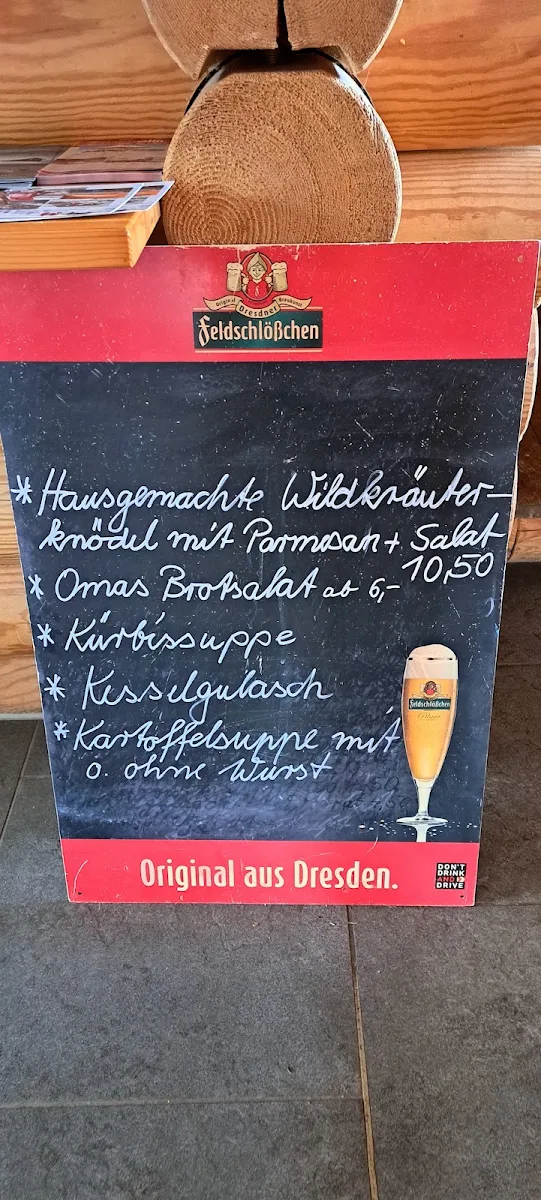 Original Braukunst
Dresdner
Feldschlößchen
* Hausgemachte Wildkräuter-
knödel mit Parmesan + Salat
10,50
* Omas Brotsalat ab 6,-
* Kürbissuppe
* Kesselgulasch
* Kartoffelsuppe mit
o. ohne Wurst
Feldschlößchen
Pilsner
Original aus Dresden.
DON'T
DRINK
AND
DRIVE